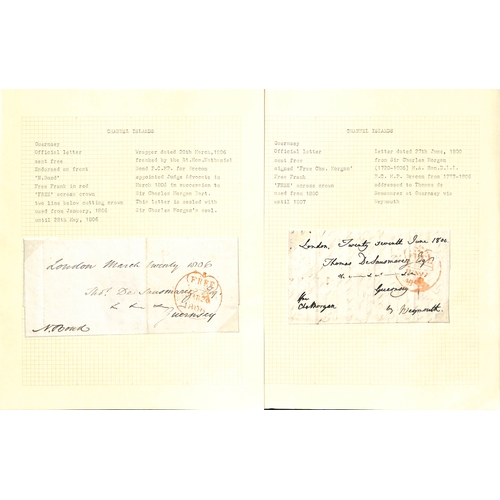 CHANNEL ISLANDS
Guernsey
Official letter
sent free
Endorsed on front
'N.Bond'
Free Frank in red
'FREE' versus crown
two line below cutting crown
used from January, 1806
until 28th May, 1806
Wrapper dated 20th March,1806
franked by the Rt.Hon.Nathaniel
Bond
appointed Judge Advocate in
March 1806 in succession to
Sir Charles Morgan Bart.
This letter is sealed with
Sir Charles Morgan's seal.
London March twenty 1806
Thos. De Sausmarez
Guernsey
N Bond
FREE
CHANNEL ISLANDS
Guernsey
Official letter
sent free
signed 'Free Cha. Morgan'
Free Frank
'FREE' versus crown
used from 1800
until 1807
Letter dated 27th June, 1800
from Sir Charles Morgan
addressed to Thomas de
Sausmarez at Guernsey via
Weymouth
London, Twenty seventh June 1800
Thomas De Sausmarez Esqr
Guernsey
by Weymouth.
free
Cha Morgan